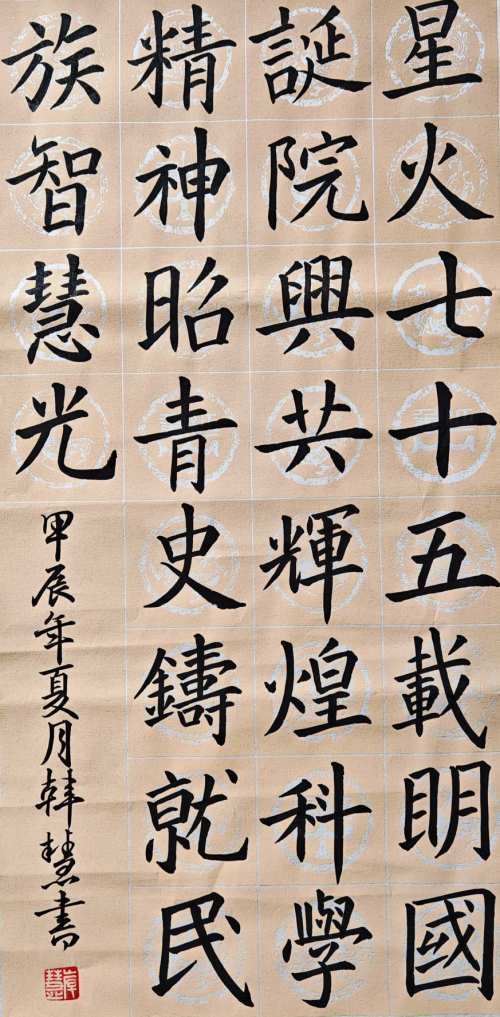 星火七十五載明國
誕院興共輝煌科學
精神昭青史鑄就民
族智慧光
甲辰年夏月韓慧書